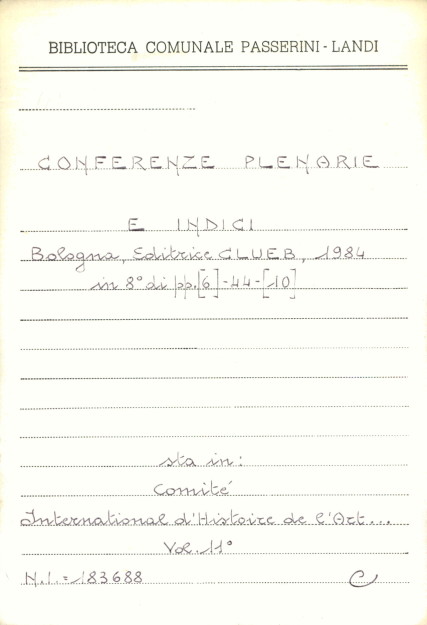 BIBLIOTECA COMUNALE PASSERINI - LANDI
CONFERENZE PLENARIE
E INDICI
Bologna, Editrice CLUEB, 1984
in 8° di pp.[6]-44-[10]
sta in:
Comité
International d'Histoire de l'Art...
Vol. 11°
N.I.=183688 C